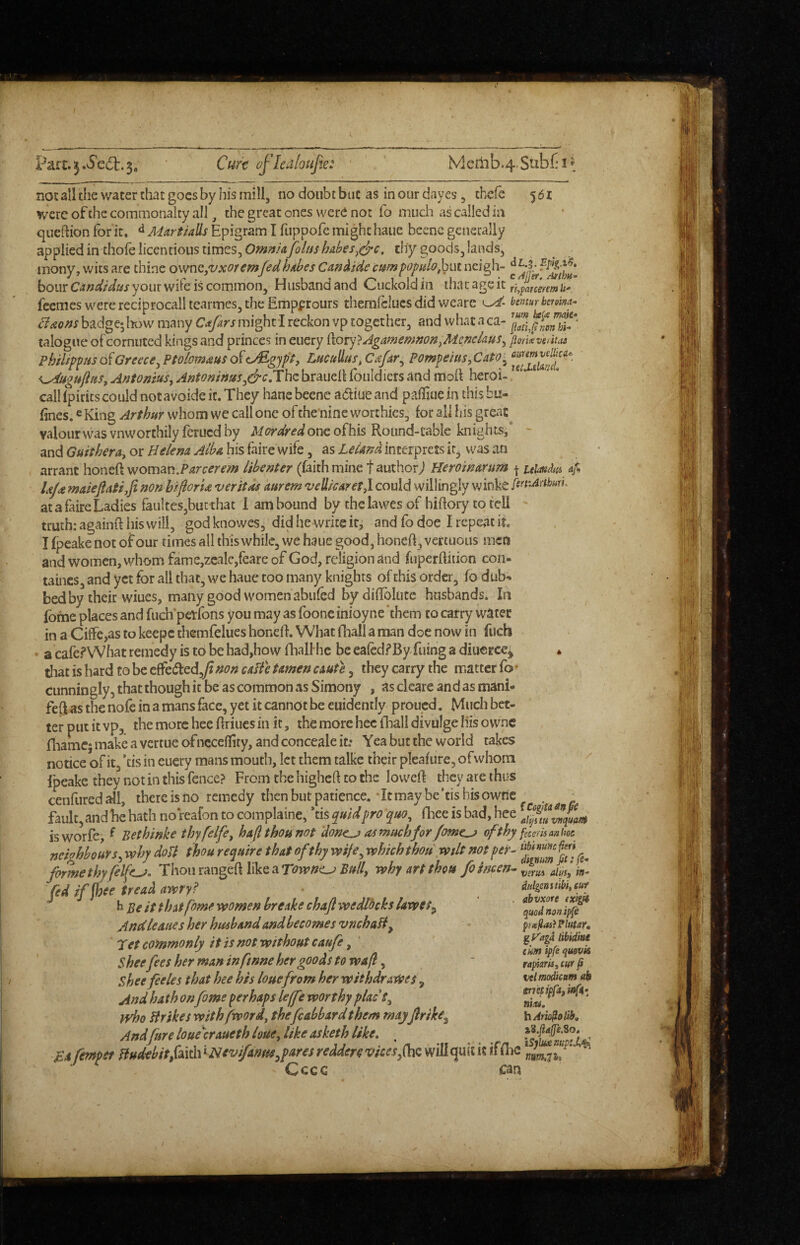 Part.3.Sect.3. Cure of Iealousie: Memb.4.Subs.1.
not all the water that goes by his mill, no doubt but as in our dayes, these 561
were of the commonalty all, the great ones were not so much as called in
question for it. d Martialls Epigram I suppose might haue beene generally
applied in those licentious times, Omnia solus habes,&c. thy goods, lands,
mony, wits are thine owne, vxorem sed habes Candide cum populo, but neigh-
bour Candidus your wife is common, Husband and Cuckold in that age it
seemes were reciprocall tearmes, the Emperours themselues did weare A-
ctæons badge; how many Cæsars might I reckon vp together, and what a ca-
talogue of cornuted kings and princes in euery story? Agamemnon, Menelaus,
Philippus of Greece, Ptolomæus of Ægypt, Lucullus, Cæsar, Pompeius, Cato,
Augustus, Antonius, Antoninus,&c. The brauest souldiers and most heroi-
call spirits could not avoide it. They hane beene actiue and passiue in this bu-
sines. e King Arthur whom we call one of the nine worthies, for all his great
valour was vnworthily serued by Mordred one of his Round-table knights,
and Guithera, or Helena Alba his faire wife, as Leland interprets it, was an
arrant honest woman. Parcerem libenter (saith mine † author) Heroinarum
læsæ maiestati, si non historiæ veritas aurem vellicaret, I could willingly winke
at a faire Ladies faultes, but that I am bound by the lawes of history to tell
truth: against his will, god knowes, did he write it, and so doe I repeat it.
I speake not of our times all this while, we haue good, honest, vertuous men
and women, whom fame, zeale, feare of God, religion and superstition con-
taines, and yet for all that, we haue too many knights of this order, so dub-
bed by their wiues, many good women abused by dissolute husbands. In
some places and such persons you may as soone inioyne them to carry water
in a Ciffe, as to keepe themselues honest. What shall a man doe now in such
a case? What remedy is to be had, how shall he be eased? By suing a diuerce,
that is hard to be effected, si non castè tamen cautè, they carry the matter so
cunningly, that though it be as common as Simony, as cleare and as mani-
fest as the nose in a mans face, yet it cannot be euidently proued. Much bet-
ter put it vp, the more hee striues in it, the more hee shall divulge his owne
shame; make a vertue of necessity, and conceale it: Yea but the world takes
notice of it, 'tis in euery mans mouth, let them talke their pleasure, of whom
speake they not in this sence? From the highest to the lowest they are thus
censured all, there is no remedy then but patience. It may be 'tis his owne
fault, and he hath no reason to complaine, 'tis quid pro quo, shee is bad, hee
is worse, f Bethinke thy selfe, hast thou not done as much for some of thy
neighbours, why dost thou require that of thy wife, which thou wilt not per-
forme thy selfe. Thou rangest like a Towne Bull, why art thou so incen-
sed if shee tread awry?
h Be it that some women breake chast wedlocks lawes,
And leaues her husband and becomes vnchast,
Yet commonly it is not without cause,
Shee sees her man in sinne her goods to wast,
Shee feeles that hee his loue from her withdrawes,
And hath on some perhaps lesse worthy plac't,
Who strikes with sword, the scabbard them may strike,
And sure loue craueth loue, like asketh like.
Ea semper studebit, saith i Nevisanus, pares reddere vices, she will quit it if she
Cccc can
d L.3. Epig.26.
e Asser. Arthu-
ri, parcerem li-
bentur heroina-
rum læsæ maie-
stati, si non hi-
storiæ veritas
aurem vellica-
ret. Leland.
† Lelandus as-
sert: Arthuri.
f Cogita an sic
alijs tu vnquam
feceris an hoc
tibi nunc fieri
dignum sit: se-
verus alijs, in-
dulgens tibi, cur
ab vxore exigis
quod non ipse
præstas? Plutar.
g Vagâ libidine
cùm ipse quovis
rapiaris, cur si
vel modicum ab
erret ipsa, insa-
nias.
h Ariosto lib.
28. staffe. 80.
i Sylvæ nupt. l.4.
num.72.